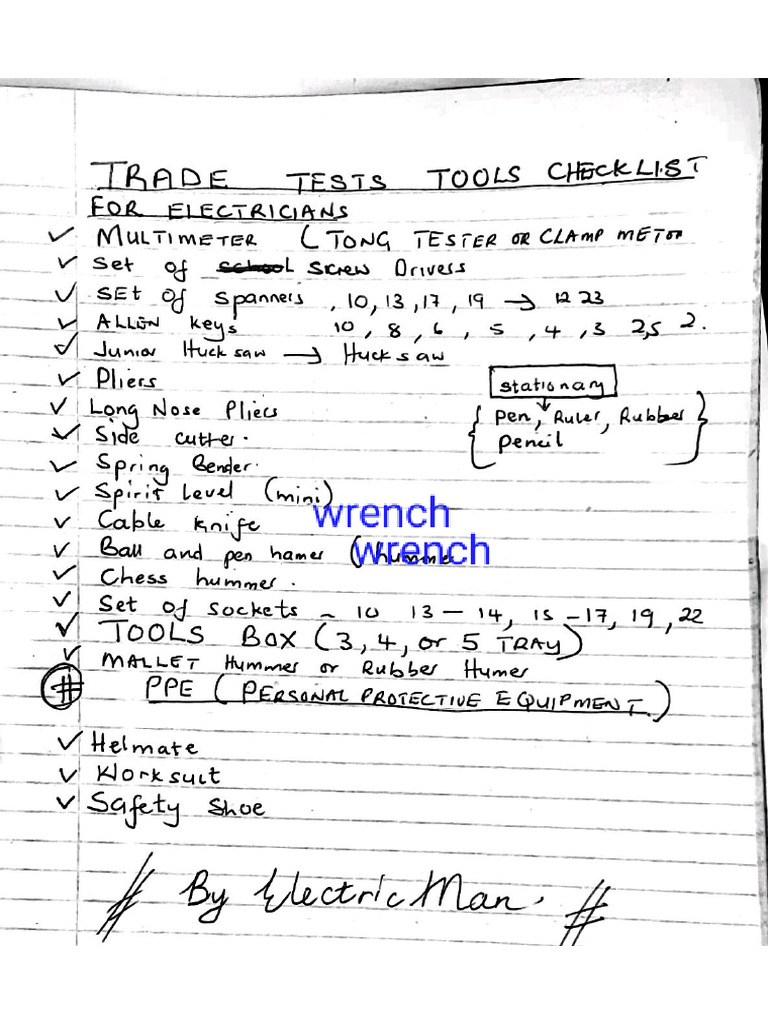 TRADE TESTS TOOLS CHECKLIST
FOR ELECTRICIANS
✓ MULTIMETER (TONG TESTER OR CLAMP METOR
✓ Set of school screw Drivers
✓ SET of Spanners, 10, 13, 17, 19 → 12 23
✓ ALLEN keys 10, 8, 6, 5, 4, 3 2,5 2.
✓ Junior Hucksaw → Hucksaw
✓ Pliers
stationary
✓ Long Nose Pliers
{ pen, Ruler, Rubber }
✓ Side cutter.
pencil
✓ Spring Bender.
✓ Spirit Level (mini)
wrench
✓ Cable knife
✓ Ball and pen hamer (hummer
wrench
✓ Chess hummer.
✓ Set of sockets - 10 13 - 14, 15 - 17, 19, 22
✓ TOOLS BOX (3, 4, or 5 TRAY)
✓ MALLET Hummer or Rubber Humer
# PPE (PERSONAL PROTECTIVE EQUIPMENT)
✓ Helmate
✓ Worksuit
✓ Safety Shoe
# By Electric Man. #